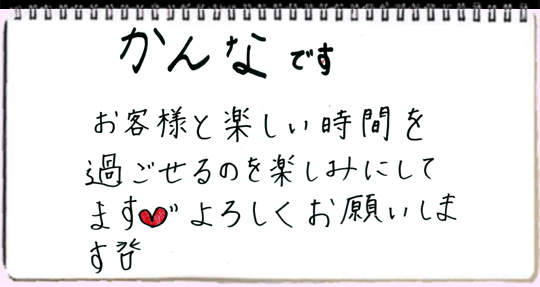 かんなです
お客様と楽しい時間を
過ごせるのを楽しみにして
ます❤よろしくお願いしま
す